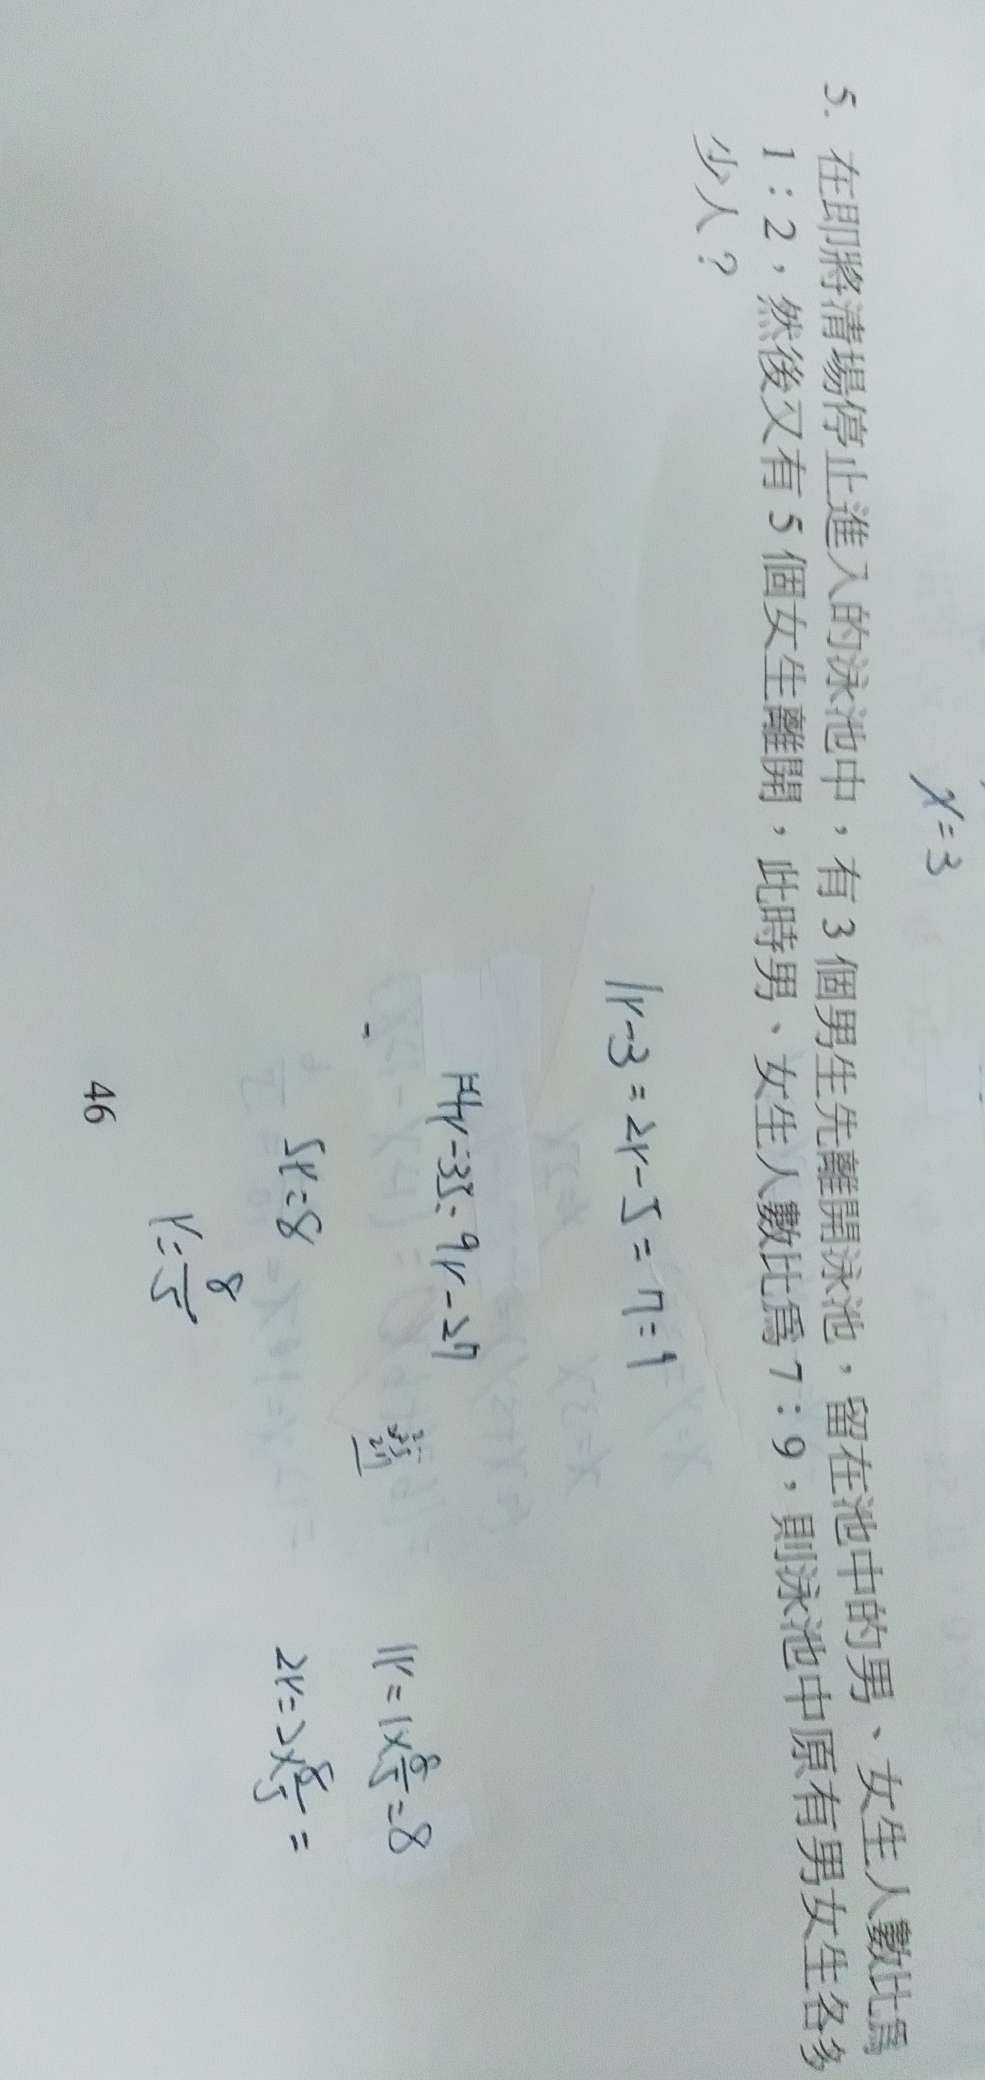 x=3
5. 在即將清場停止進入的泳池中，有3個男生先離開泳池，留在池中的男、女生人數比爲
1：2，然後又有5個女生離開，此時男、女生人數比爲7：9，則泳池中原有男女生各多
少人？
1r-3=2r-5=7=9
14r-35=9r-27
5r=8
r=8/5
1r=1×8/5=8
2r=2×8/5=
46